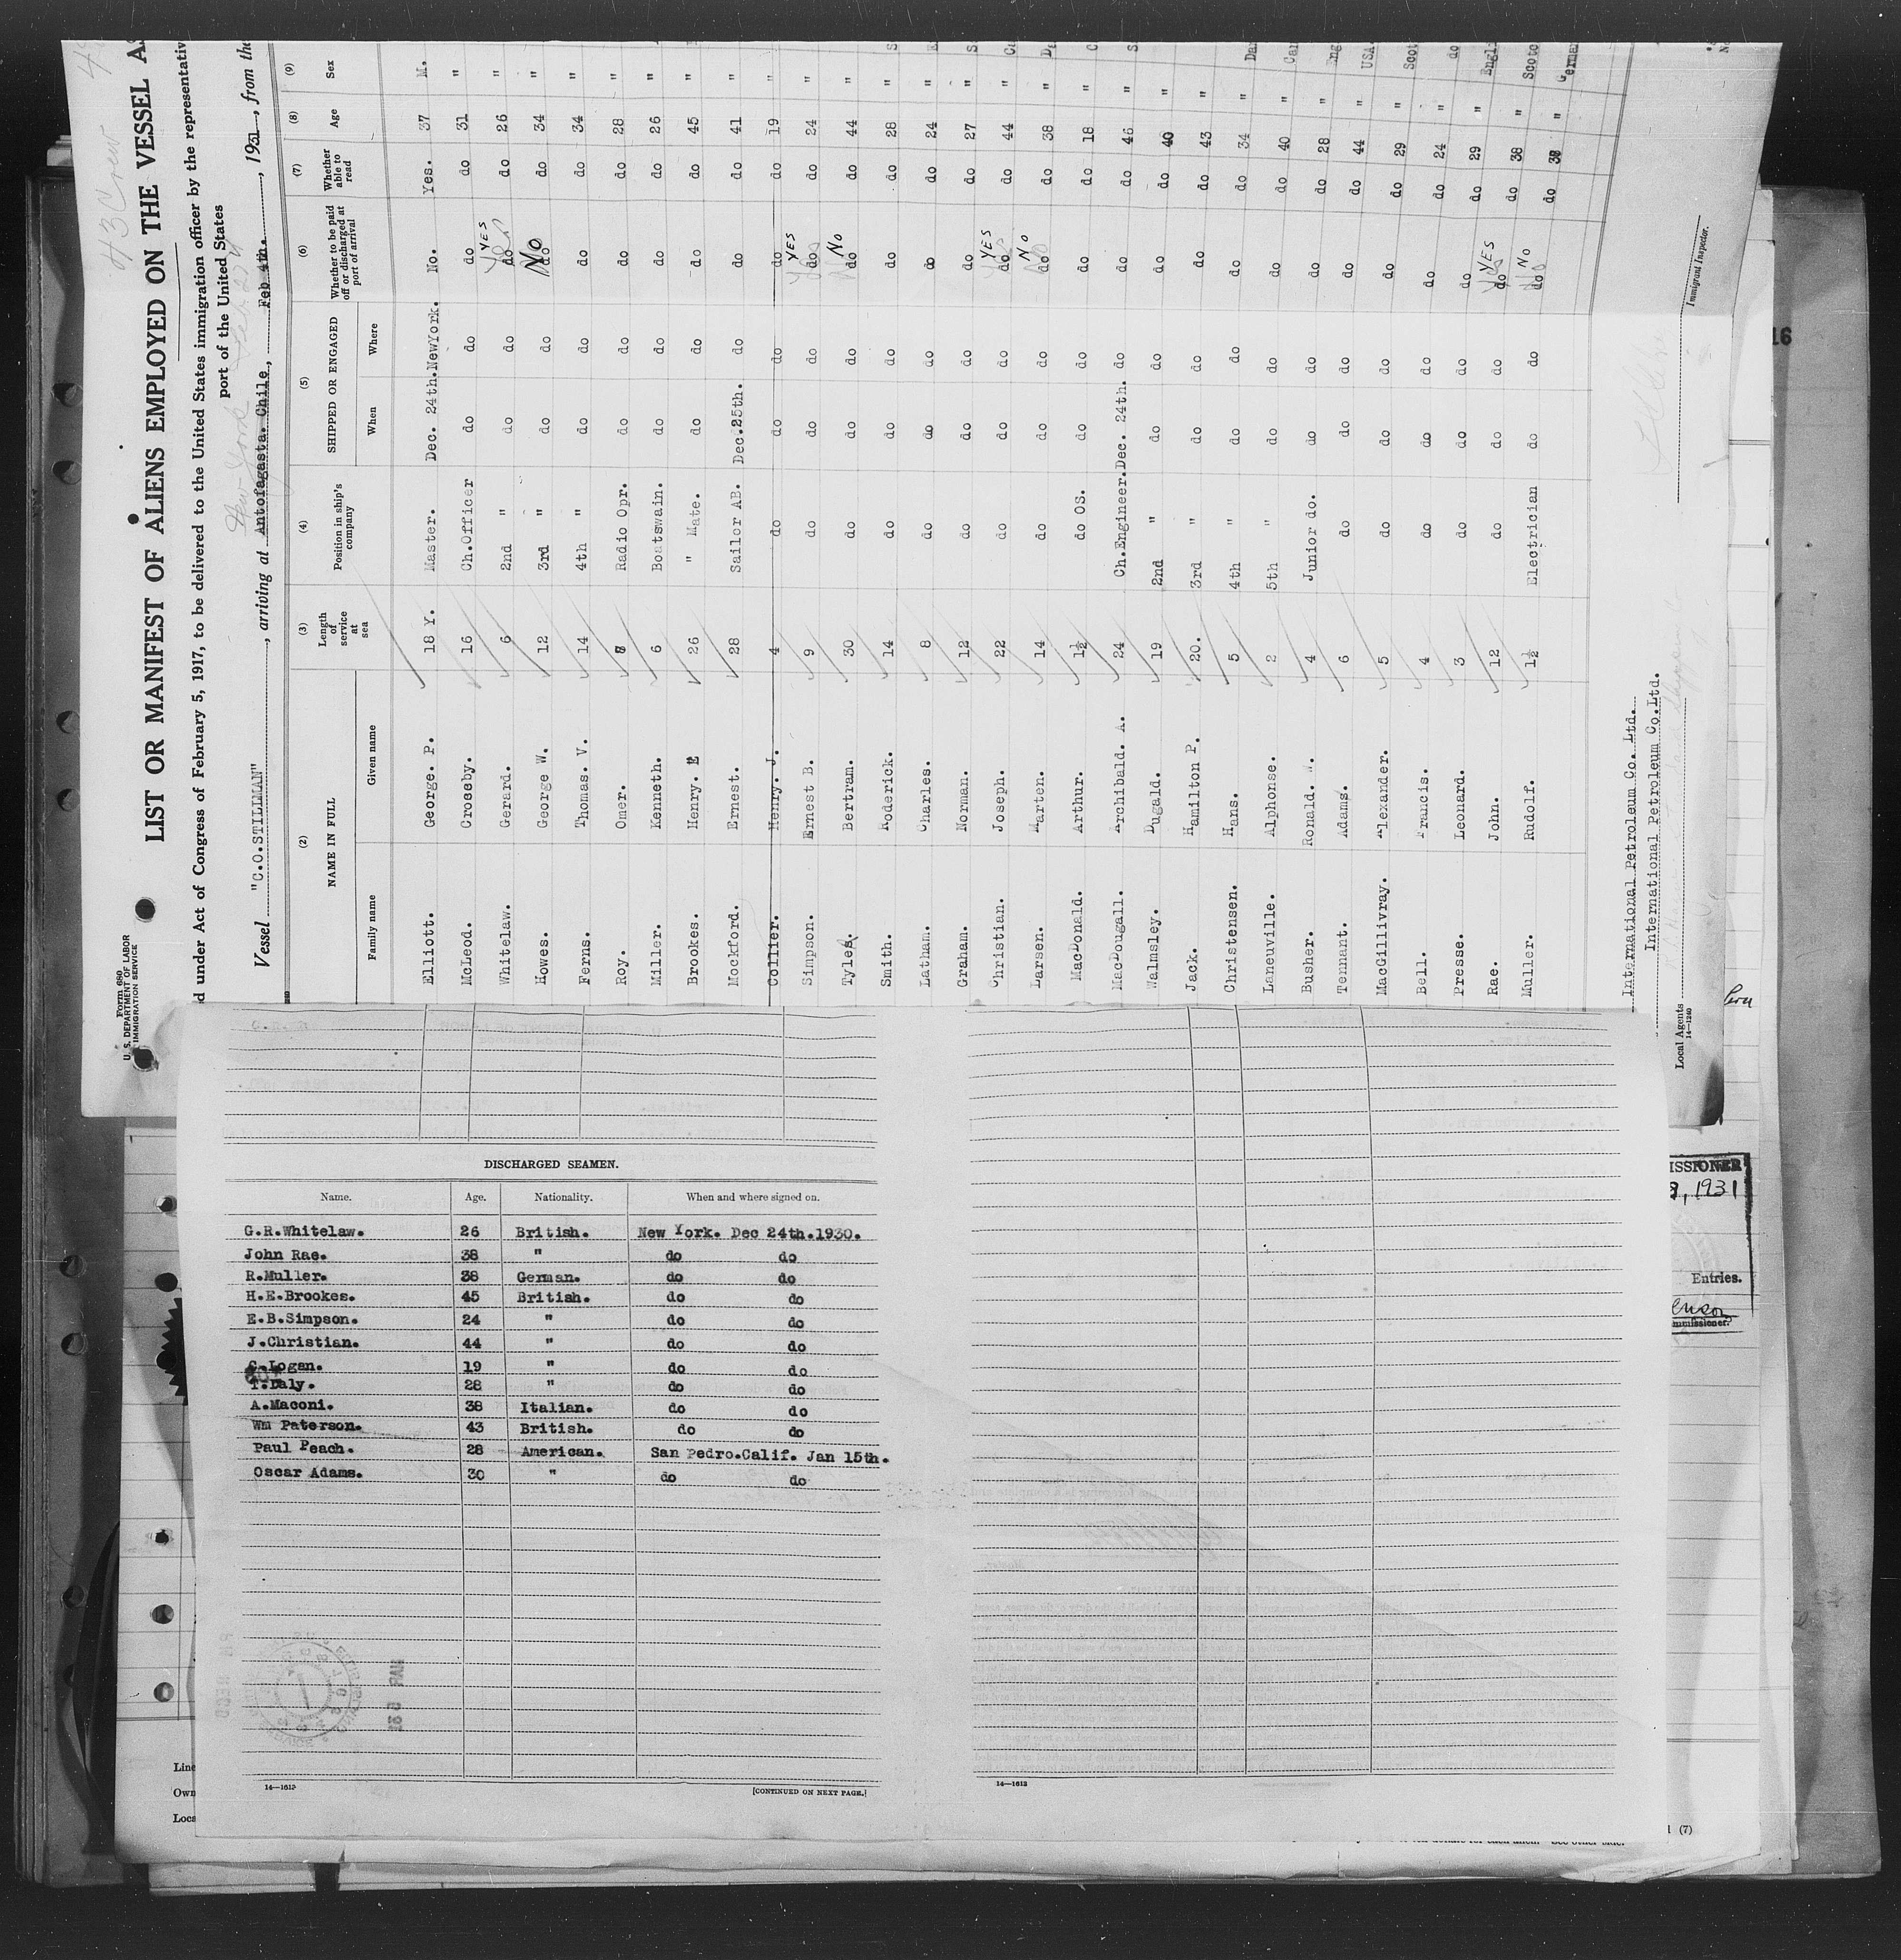 Form 680
U. S. DEPARTMENT OF LABOR
IMMIGRATION SERVICE
43 Crew
LIST OR MANIFEST OF ALIENS EMPLOYED ON THE VESSEL AS
d under Act of Congress of February 5, 1917, to be delivered to the United States immigration officer by the representativ
port of the United States
New York
Vessel "C.O.STILLMAN", arriving at Antofagasta. Chile, Feb 4th., 1931, from the
(2) (3) (4) (5) (6) (7) (8) (9)
NAME IN FULL Length of service at sea Position in ship's company SHIPPED OR ENGAGED Whether to be paid off or discharged at port of arrival Whether able to read Age Sex
Family name Given name When Where
Elliott. George. P. 18 Y. Master. Dec. 24th. NewYork. No. Yes. 37 M.
McLeod. Crossby. 16 Ch.Officer do do do do 31 "
Whitelaw. Gerard. 6 2nd " do do do YES do 26 "
Howes. George W. 12 3rd " do do do No do 34 "
Ferns. Thomas. V. 14 4th " do do do do 34 "
Roy. Omer. Radio Opr. do do do do 28 "
Miller. Kenneth. 6 Boatswain. do do do do 26 "
Brookes. Henry. E 26 " Mate. do do do do 45 "
Mockford. Ernest. 28 Sailor AB. Dec.25th. do do do 41 "
Collier. Henry. J. 4 do do do do do 19 "
Simpson. Ernest B. 9 do do do do YES do 24 "
Tyler. Bertram. 30 do do do do NO do 44 "
Smith. Roderick. 14 do do do do do 28 " S
Latham. Charles. 8 do do do do do 24 " E
Graham. Norman. 12 do do do do do 27 " S
Christian. Joseph. 22 do do do do YES do 44 "
Larsen. Marten. 14 do do do do NO do 38 " Da
MacDonald. Arthur. 1½ do OS. do do do do 18 " C
MacDougall. Archibald. A. 24 Ch.Engineer. Dec. 24th. do do do 46 " S
Walmsley. Dugald. 19 2nd " do do do do 40 "
Jack. Hamilton P. 20. 3rd " do do do do 43 "
Christensen. Hans. 5 4th " do do do do 34 " Da
Laneuville. Alphonse. 2 5th " do do do do 40 " Can
Busher. Ronald. 4 Junior do. do do do do 28 " Eng
Tennant. Adams. 6 do do do do do 44 " USA.
MacGillivray. Alexander. 5 do do do do do 29 " Scot
Bell. Francis. 4 do do do do do 24 " do
Presse. Leonard. 3 do do do do do 29 " Engli
Rae. John. 12 do do do do YES do 38 " Scoto
Muller. Rudolf. 1½ Electrician do do do NO do 38 " German
International Petroleum Co. Ltd.
International Petroleum Co.Ltd.
Local Agents
14—1240
Immigrant Inspector.
16
DISCHARGED SEAMEN.
Name. Age. Nationality. When and where signed on.
G.R.Whitelaw. 26 British. New York. Dec 24th.1930.
John Rae. 38 " do do
R.Muller. 38 German. do do
H.E.Brookes. 45 British. do do
E.B.Simpson. 24 " do do
J.Christian. 44 " do do
C.Logan. 19 " do do
T.Daly. 28 " do do
A.Maconi. 38 Italian. do do
Wm Paterson. 43 British. do do
Paul Peach. 28 American. San Pedro.Calif. Jan 15th.
Oscar Adams. 30 " do do
14—1613
[CONTINUED ON NEXT PAGE.]
14—1613
ISSIONER
9, 1931
Entries.
mmissioner.
Line
Own
Loca
(7)